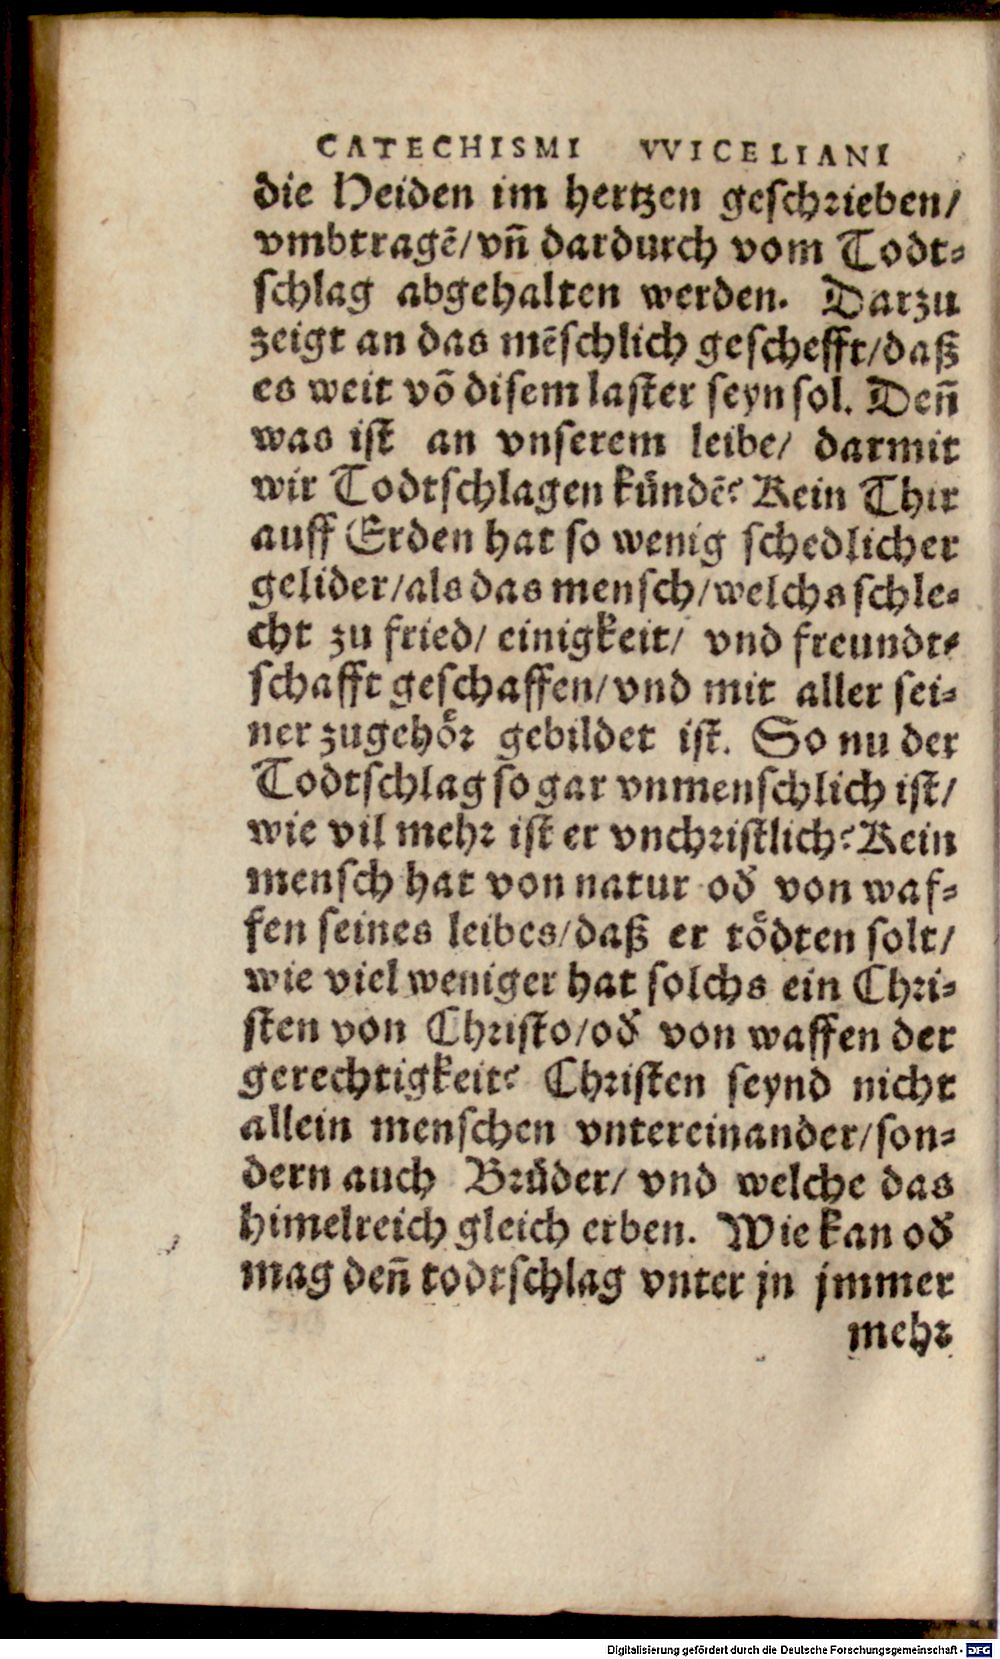 CATECHISMI VVICELIANI
die Heiden im hertzen geschrieben/
vmbtragē/vn̄ dardurch vom Todt-
schlag abgehalten werden. Darzu
zeigt an das mēschlich geschefft/daß
es weit vō disem laster seyn sol. Den̄
was ist an vnserem leibe/ darmit
wir Todtschlagen kündē? Kein Thir
auff Erden hat so wenig schedlicher
gelider/als das mensch/welchs schle-
cht zu fried/ einigkeit/ vnd freundt-
schafft geschaffen/vnd mit aller sei-
ner zugehör gebildet ist. So nu der
Todtschlag so gar vnmenschlich ist/
wie vil mehr ist er vnchristlich? Kein
mensch hat von natur od̕ von waf-
fen seines leibes/daß er tödten solt/
wie viel weniger hat solchs ein Chri-
sten von Christo/od̕ von waffen der
gerechtigkeit? Christen seynd nicht
allein menschen vntereinander/son-
dern auch Brüder/ vnd welche das
himelreich gleich erben. Wie kan od̕
mag den̄ todtschlag vnter jn jmmer
mehr
Digitalisierung gefördert durch die Deutsche Forschungsgemeinschaft - DFG